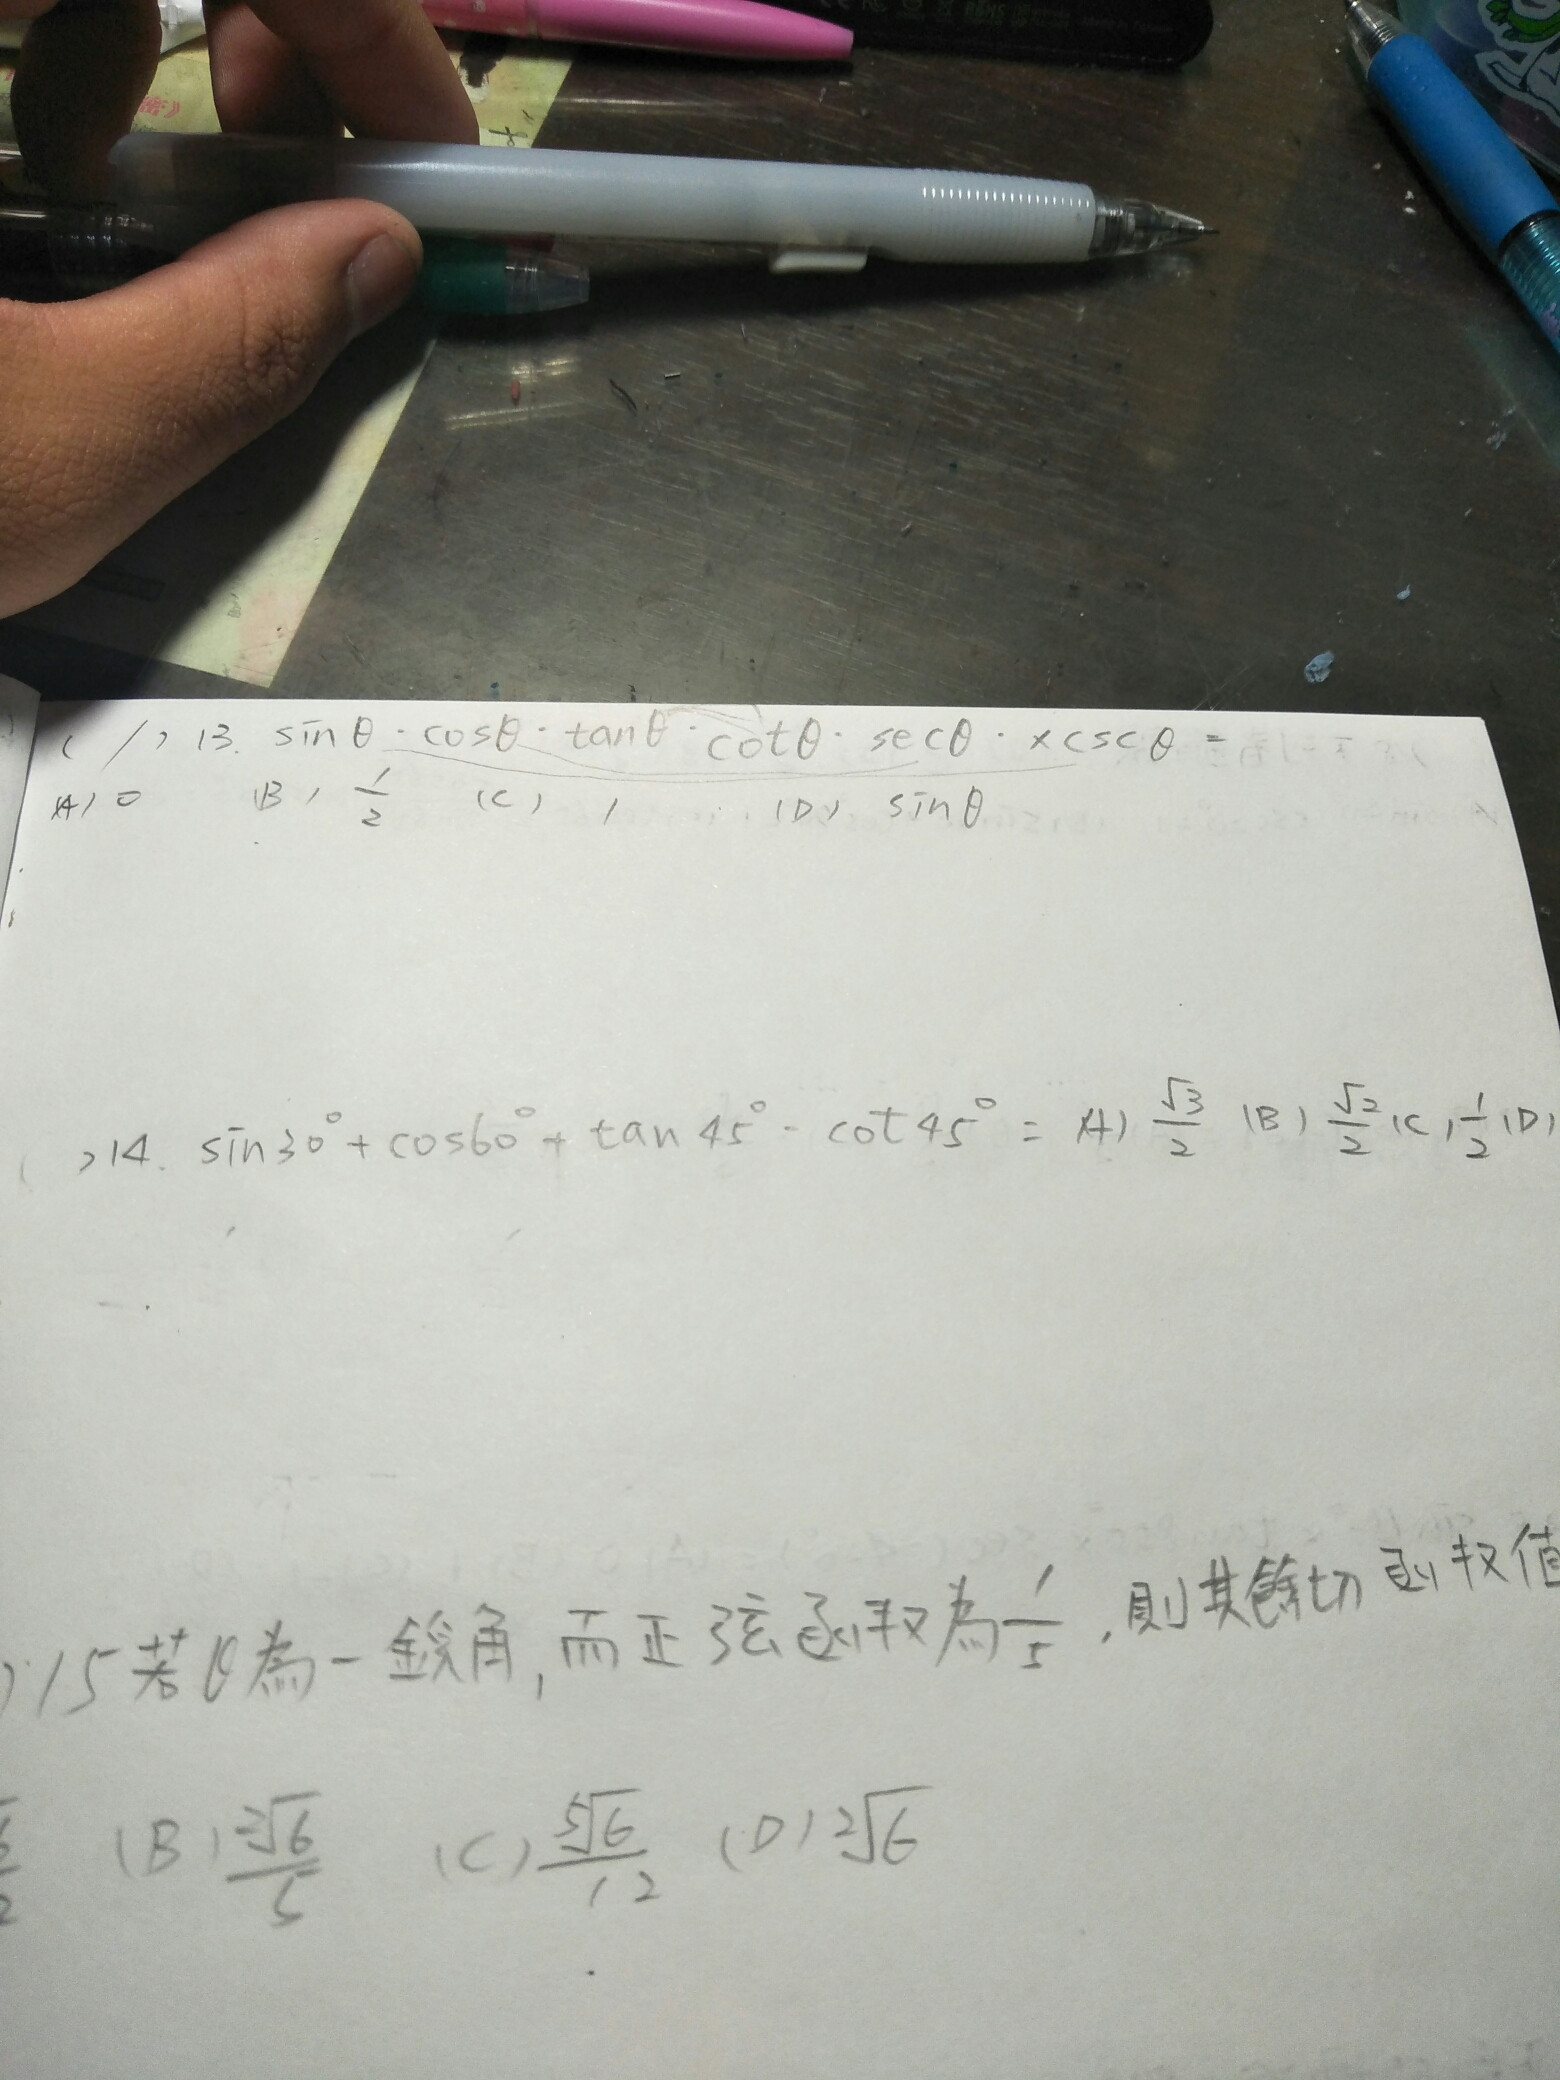 ( / ) 13. sinθ · cosθ · tanθ · cotθ · secθ · × cscθ =
(A) 0 (B) 1/2 (C) 1 (D) sinθ
( ) 14. sin30° + cos60° + tan45° - cot45° = (A) √3/2 (B) √2/2 (C) 1/2 (D)
) 15 若θ為一銳角, 而正弦函数為 1/5 , 則其餘切函数值
(B) 2√6/5 (C) 5√6/12 (D) 2√6